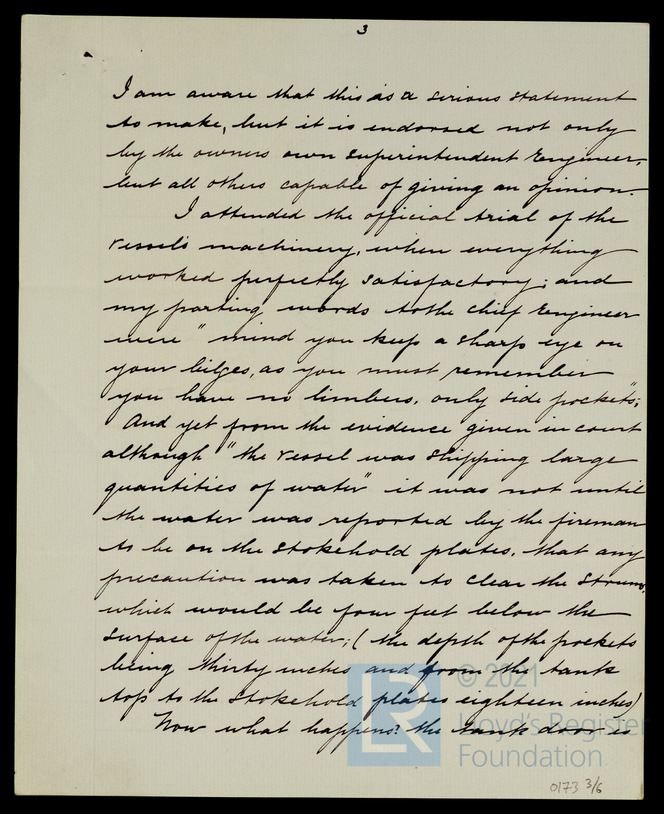 3
I am aware that this is a serious statement
to make, but it is endorsed not only
by the owners own superintendent Engineer,
but all others capable of giving an opinion.
I attended the official trial of the
vessels machinery, when everything
worked perfectly satisfactory; and
my parting words to the chief Engineer
were "mind you keep a sharp eye on
your bilges, as you must remember
you have no limbers, only side pockets";
And yet from the evidence given in court
although "the vessel was shipping large
quantities of water" it was not until
the water was reported by the fireman
to be on the stokehold plates, that any
precaution was taken to clear the strums,
which would be four feet below the
surface of the water; (the depth of the pockets
being thirty inches and from the tank
top to the stokehold plates eighteen inches)
Now what happens? the tank door is
LR
© 2021
Lloyd's Register
Foundation
0173 3/6